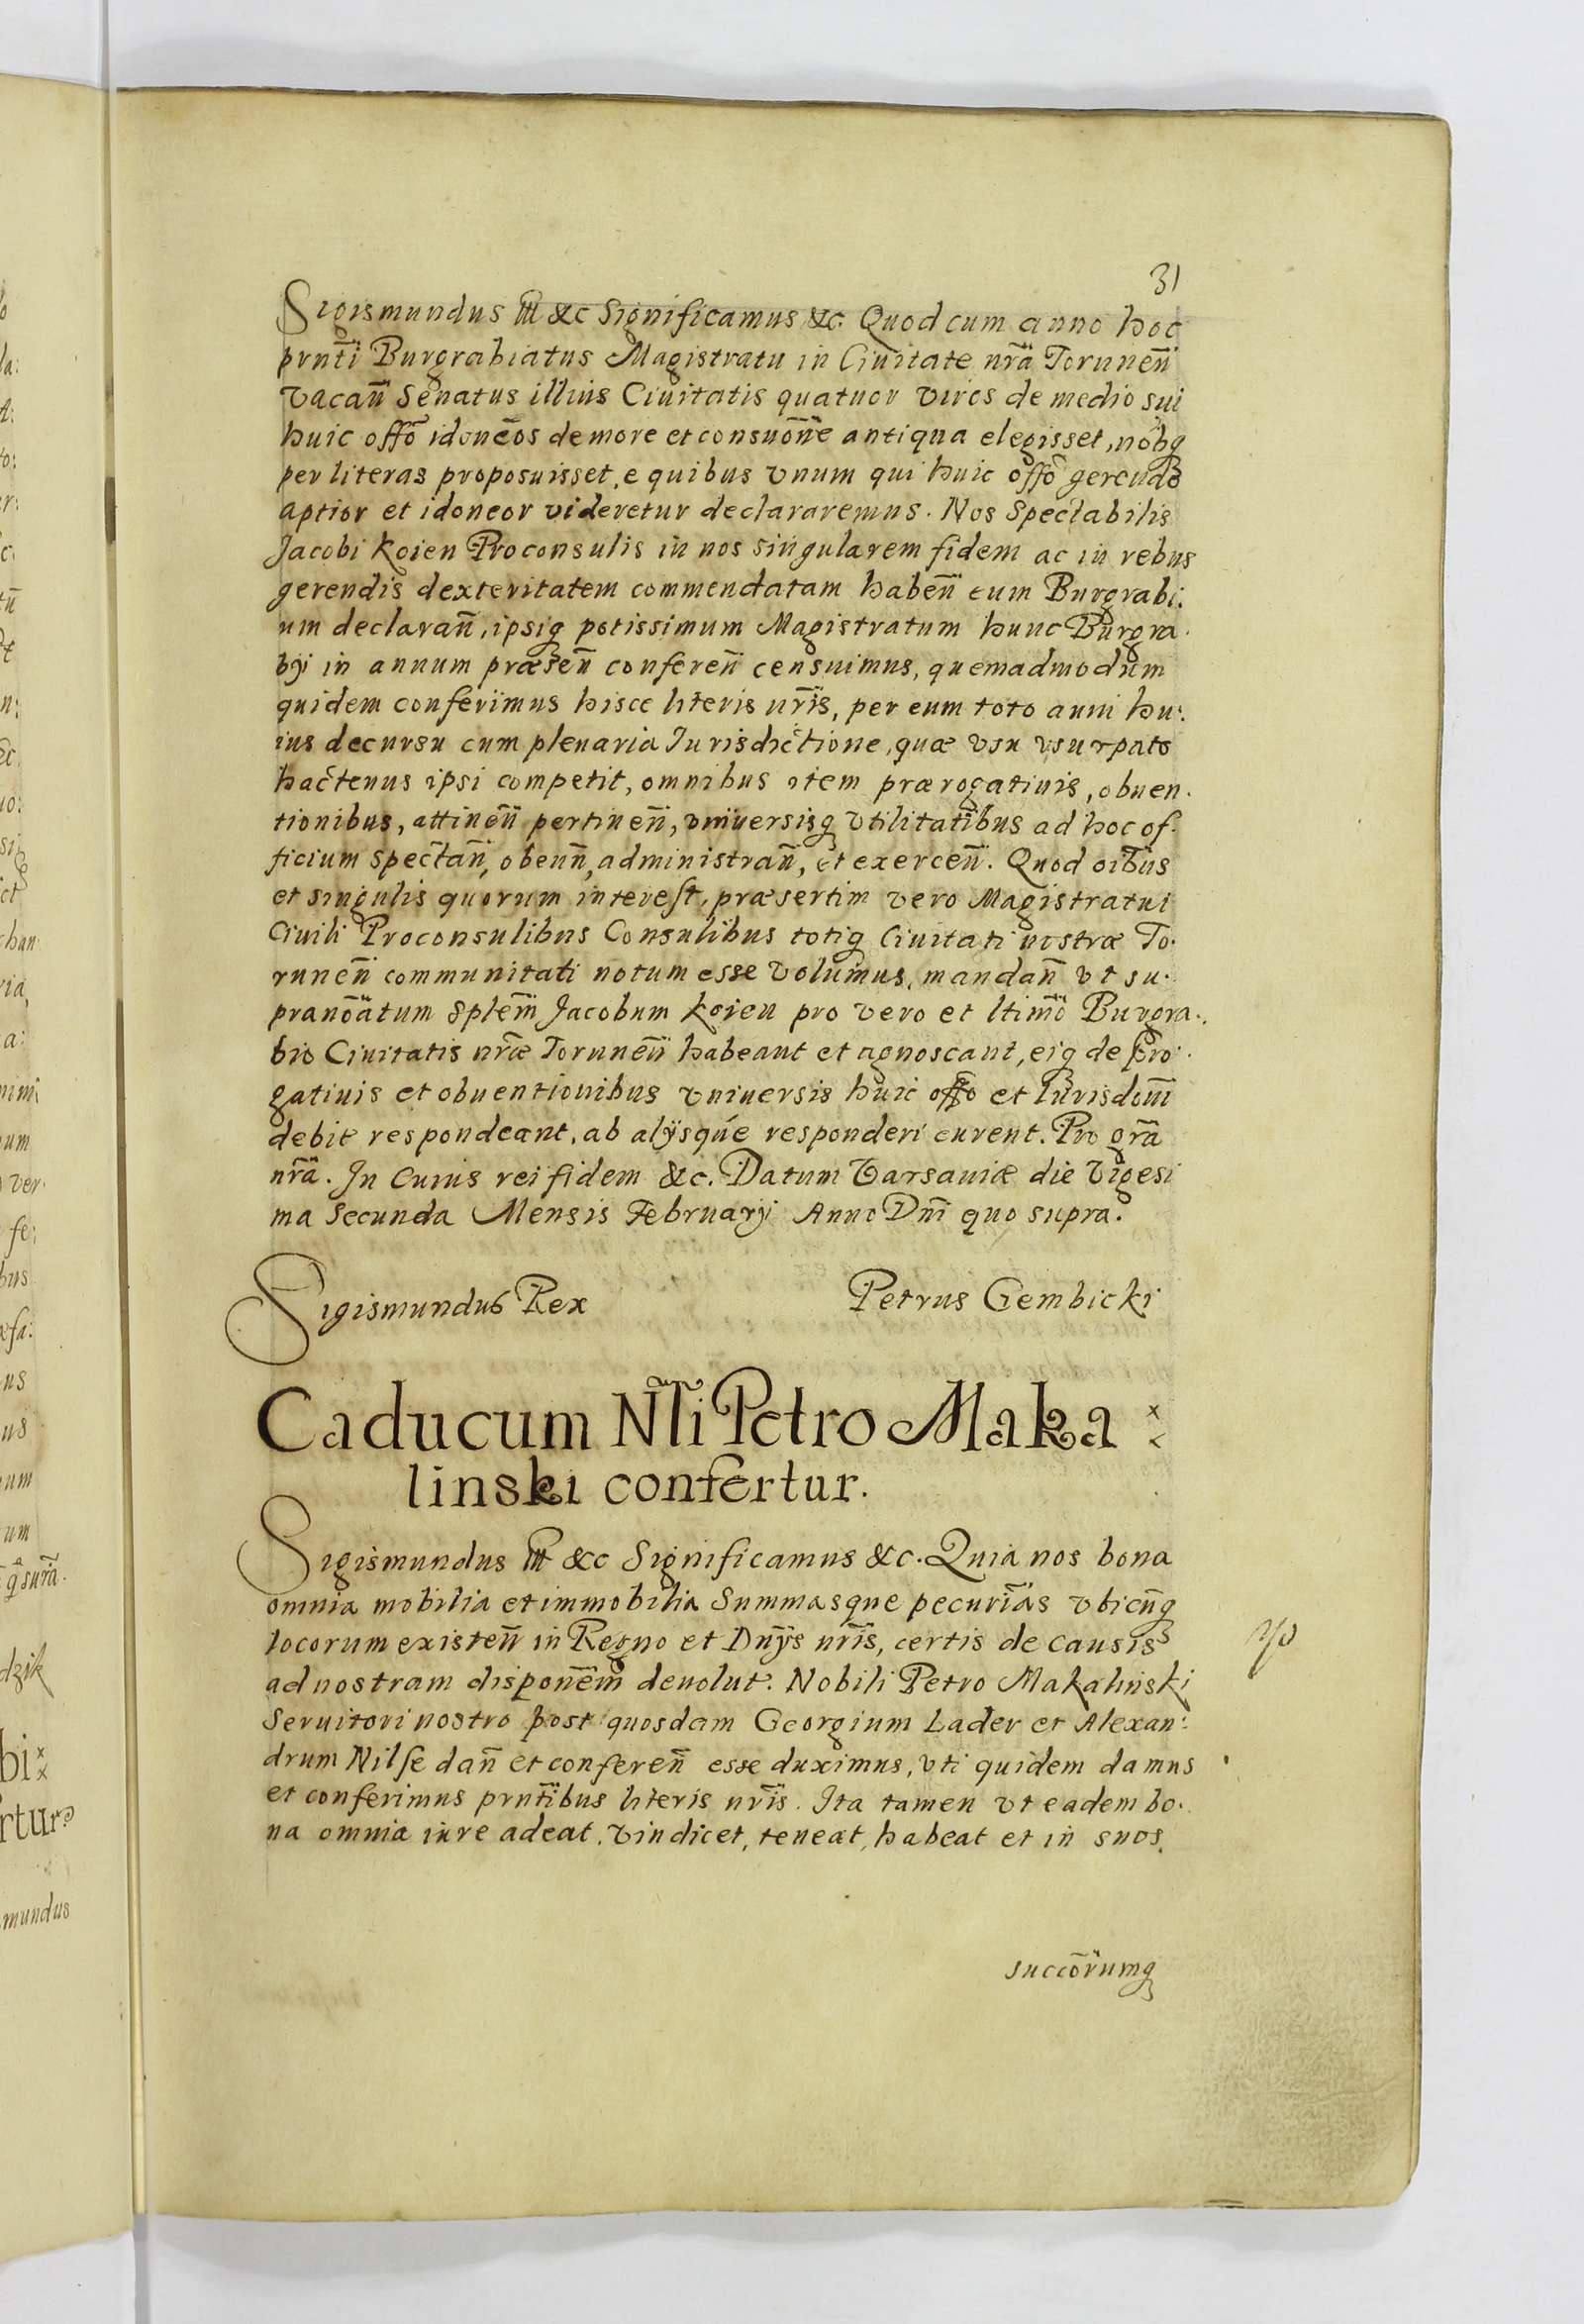 31
Sigismundus III &c Significamus &c. Quod cum anno hoc
prnti Burgrabiatus Magistratu in Ciuitate nrã Torunen̄
vacan̄ Senatus illius Ciuitatis quatuor viros de medio sui
huic offo idoneos de more et consuōne antiqua elegisset, nobq
per literas proposuisset, e quibus vnum qui huic offo gerendo
aptior et idoneor videretur declararemus. Nos Spectabilis
Jacobi Koien Proconsulis in nos singularem fidem ac in rebus
gerendis dexteritatem commendatam haben̄ eum Burgrabi.
um declaran̄, ipsiq potissimum Magistratum hunc Burgra.
bÿ in annum præsen̄ conferen̄ censuimus, quemadmodum
quidem conferimus hisce literis nrīs, per eum toto anni hu:
ius decursu cum plenaria Jurisdictione, quæ vsu vsurpato
hactenus ipsi competit, omnibus item prærogatiuis, obuen.
tionibus, attinen̄ pertinen̄, vniuersisq vtilitatibus ad hoc of.
ficium spectan̄, obeun̄, administran̄, et exercen̄. Quod oībus
et singulis quorum interest, præsertim vero Magistratui
Ciuili Proconsulibus Consulibus totiq Ciuitati nostræ To.
runen̄ communitati notum esse volumus, mandan̄ vt su.
pranōatum Splem̄ Jacobum Koien pro vero et ltimō Burgra.
bio Ciuitatis nræ Torunen̄ habeant et agnoscant, eiq de pro.
gatiuis et obuentionibus vniuersis huic offo et Iurisdoni
debite respondeant, ab alÿsque responderi curent. Pro grã
nrã. In Cuius rei fidem &c. Datum Varsauiæ die Vigesi
ma Secunda Mensis Februarÿ Anno Dn̄i quo supra.
Sigismundus Rex Petrus Gembicki
Caducum Nl̃i Petro Maka
linski confertur.
Sigismundus III &c Significamus &c. Quia nos bona
omnia mobilia et immobilia Summasque pecunias vbicūq
locorum existen̄ in Regno et Dn̄ÿs nrīs, certis de causis
ad nostram disponēm deuolut. Nobili Petro Makalinski
Seruitori nostro post quosdam Georgium Lader et Alexan:
drum Nilse dan̄ et conferen̄ esse duximus, vti quidem damus
et conferimus prntibus literis nrīs. Ita tamen vt eadem bo.
na omnia iure adeat, vindicet, teneat, habeat et in suos
succōrumq